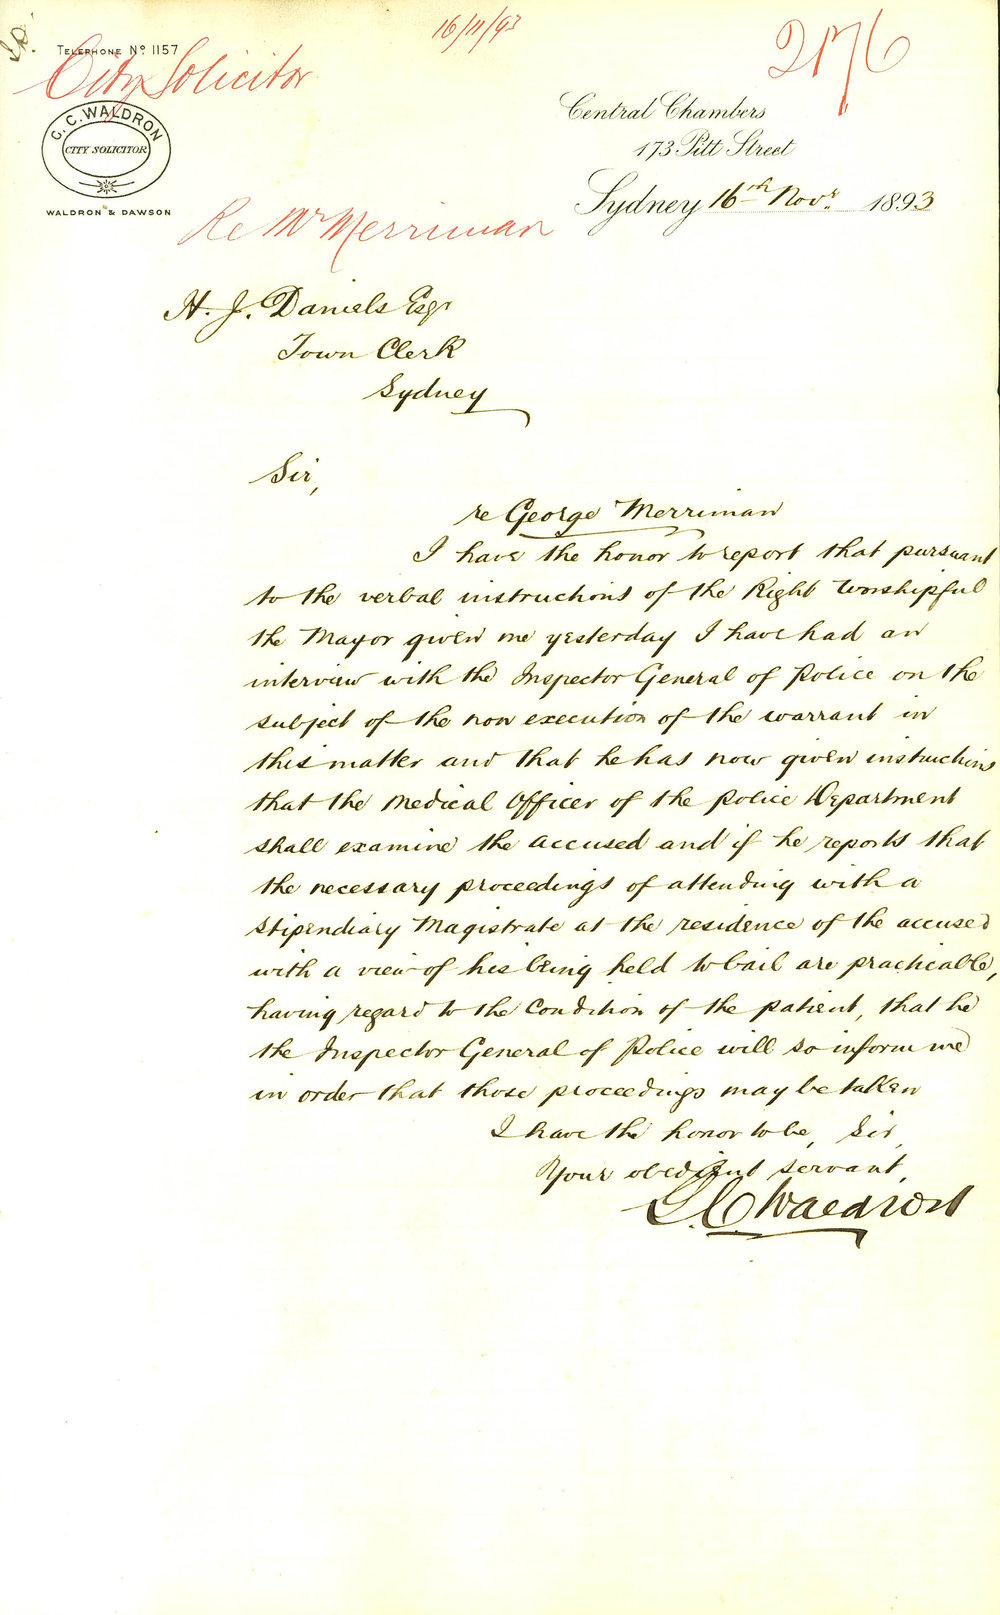 16/11/93
2176
TELEPHONE No. 1157
City Solicitor
C. C. WALDRON
CITY SOLICITOR
WALDRON & DAWSON
Central Chambers
173 Pitt Street
Sydney 16th Novr. 1893
Re Mr Merriman
H. J. Daniels Esqr
Town Clerk
Sydney
Sir,
re George Merriman
I have the honor to report that pursuant
to the verbal instructions of the Right Worshipful
the Mayor given me yesterday I have had an
interview with the Inspector General of Police on the
subject of the non execution of the warrant in
this matter and that he has now given instructions
that the Medical Officer of the Police Department
shall examine the accused and if he reports that
the necessary proceedings of attending with a
Stipendiary Magistrate at the residence of the accused
with a view of his being held to bail are practicable,
having regard to the Condition of the patient, that he
the Inspector General of Police will so inform me
in order that those proceedings may be taken
I have the honor to be, Sir,
Your obedient servant,
C. C. Waldron